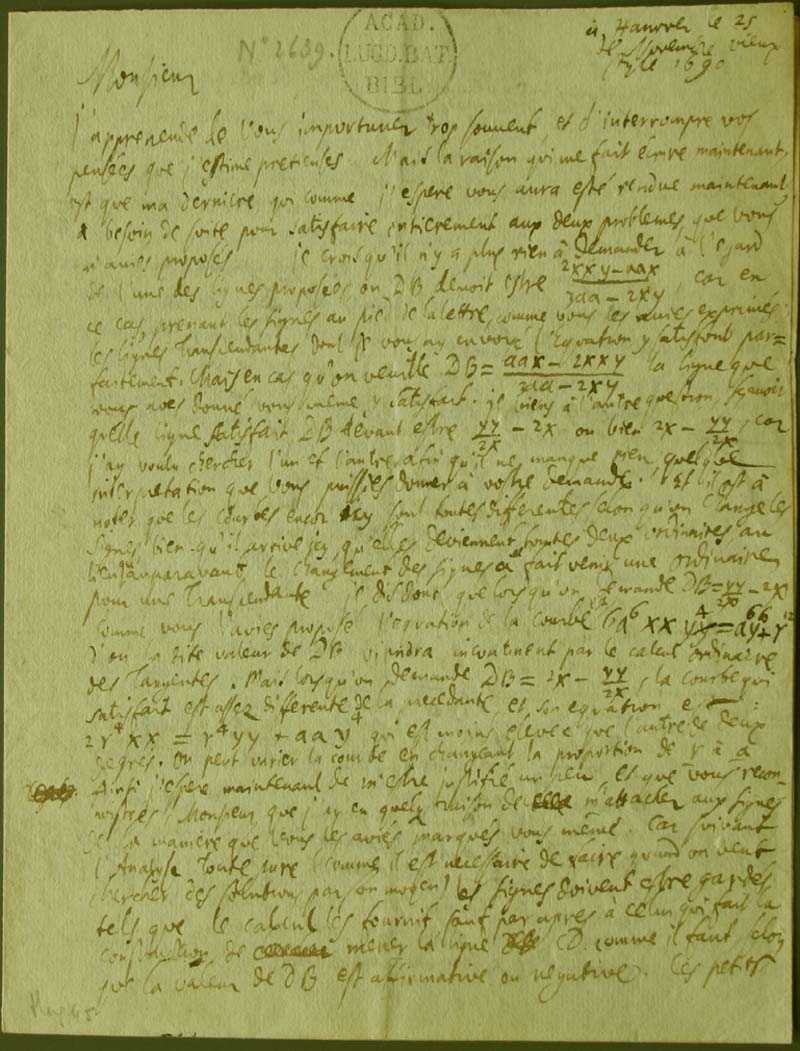 ACAD.
LUGD. BAT.
BIBL
N° 2639.
à Hanover le 25
de Novembre vieux
style 1690
Monsieur
J'apprehende de vous importuner trop souvent et d'interrompre vos
pensées que j'estime pretieuses. Mais la raison qui me fait ecrire maintenant
est que ma derniere qui comme j'espere vous aura esté rendue maintenant
a besoin de suite pour satisfaire entierement aux deux problemes que vous
m'avies proposés je crois qu'il n'y a plus rien à demander à l'egard
de l'une des lignes proposées, ou DB devoit estre 2xxy-aax / 3aa-2xy, car en
ce cas, prenant les signes au pied de la lettre, comme vous les avies exprimés
les lignes Transcendantes dont je vous ay envoyé l'Equation y satisfont par=
faitement. Mais en cas qu'on veuille DB= aax-2xxy / 3aa-2xy la ligne que
vous aves donné vous même y satisfait. je viens à l'autre question, sçavoir
quelle ligne satisfait DB devant estre yy/2x - 2x ou bien 2x - yy/2x, car
j'ay voulu chercher l'un et l'autre afin qu'il ne manque rien quelque
interpretation que vous puissies donner à vostre demande. Et il est à
noter que les courbes encor icy sont toutes differentes selon qu'on change les
signes bien qu'il arrive icy qu'elles deviennent toutes deux ordinaires au
lieu qu'auparavant le changement des signes a fait venir une ordinaire
pour une Transcendante je dis donc que lorsqu'on demande DB=yy/2x - 2x
comme vous l'avies proposé l'equation de la courbe
d'ou la dite valeur de DB viendra incontinent par le calcul ordinaire
des Tangentes. Mais lorsqu'on demande DB= 2x - yy/2x, la courbe qui
satisfait est assez differente de la precedente, et son equation est :
2r⁴xx = r⁴yy + aay⁴ qui est moins elevée que l'autre de deux
degrés. On peut varier la courbe en changeant la proportion de r à a
Ainsi j'espere maintenant de m'estre justifié un peu, et que vous recon-
noistrés Monsieur que j'ay eu quelque raison de m'attacher aux signes
de la maniere que vous les avies marqués vous même. Car suivant
l'Analyse toute pure (comme il est necessaire de faire quand on veut
chercher des solutions par son moyen) les signes doivent estre gardés
tels que le calcul les fournit sauf par apres à celuy qui fait la
construction, de mener la ligne CD. comme il faut selon
que la valeur de DB est affirmative ou negative. Ces petits